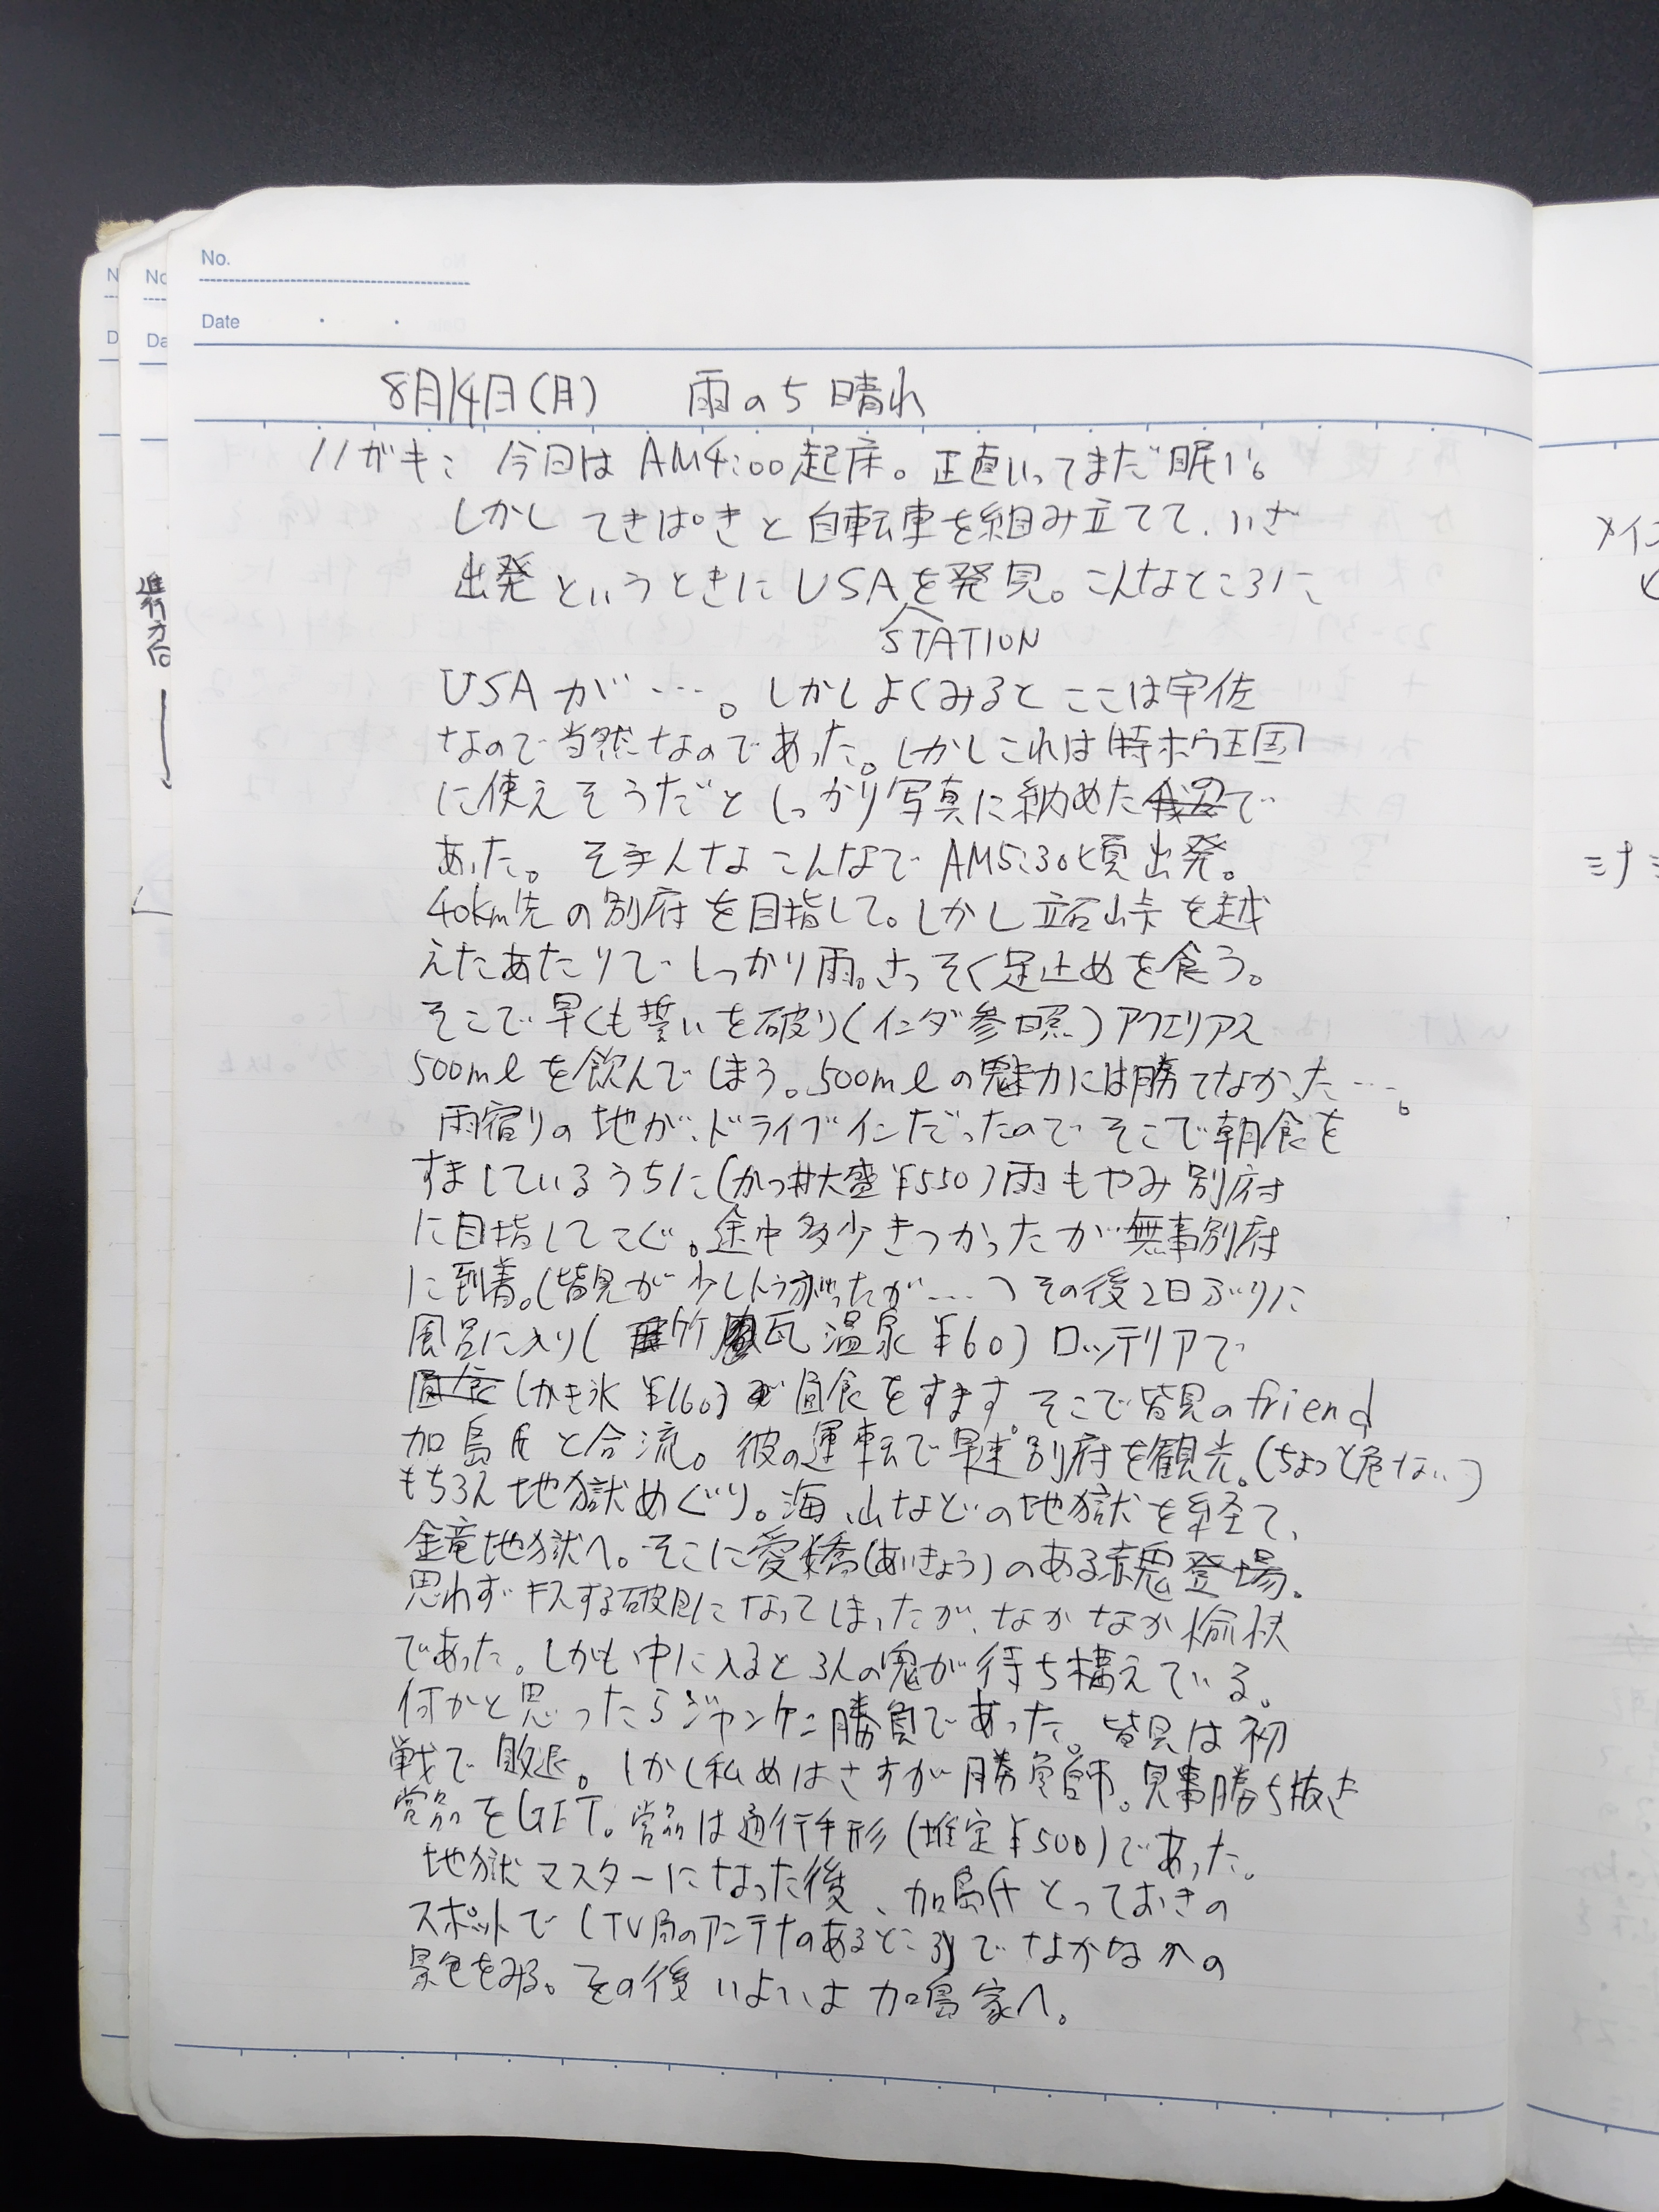 No.
Date
8月14日(月) 雨のち晴れ
今日は AM4:00起床。正直いってまだ眠い。
しかし てきぱきと 自転車を組み立てて、いざ
出発 というときに USAを発見。こんなところに
STATION
USA が…。しかしよくみると ここは宇佐
なので当然なのであった。しかしこれは特ホウ王国
に使えそうだと しっかり写真に納めた で
あった。 そんなこんなで AM5:30頃出発。
40km先の別府を目指して。しかし 立石峠を越
えたあたりで しっかり雨。さっそく足止めを食う。
そこで 早くも誓いを破り(インダ参照)アクエリアス
500mlを飲んでしまう。500mlの魅力には勝てなかった…。
雨宿りの地が、ドライブインだったので そこで朝食を
すましているうちに(かつ丼大盛¥550)雨もやみ別府
に目指してこぐ。途中多少きつかったが 無事別府
に到着。(皆見が少し たが…)その後2日ぶりに
風呂に入り( 竹瓦温泉 ¥60)ロッテリアで
(かき氷 ¥160)で昼食をすます。そこで皆見のfriend
加島氏と合流。彼の運転で早速別府を観光。(ちょっと危ない)
もちろん地獄めぐり。海、山などの地獄を経て、
金竜地獄へ。そこに愛嬌(あいきょう)のある 鬼登場。
思わずキスする破目になってしまったが、なかなか愉快
であった。しかも中に入ると3人の鬼が待ち構えている。
何かと思ったらジャンケン勝負であった。皆見は初
戦で敗退。しかし私めはさすが勝負師。見事勝ち抜き
賞品をGET。賞品は通行手形(推定¥500)であった。
地獄マスターになった後、加島氏とっておきの
スポットで(TV局のアンテナのあるところ)でなかなかの
景色をみる。その後いよいよ加島家へ。
進行方向